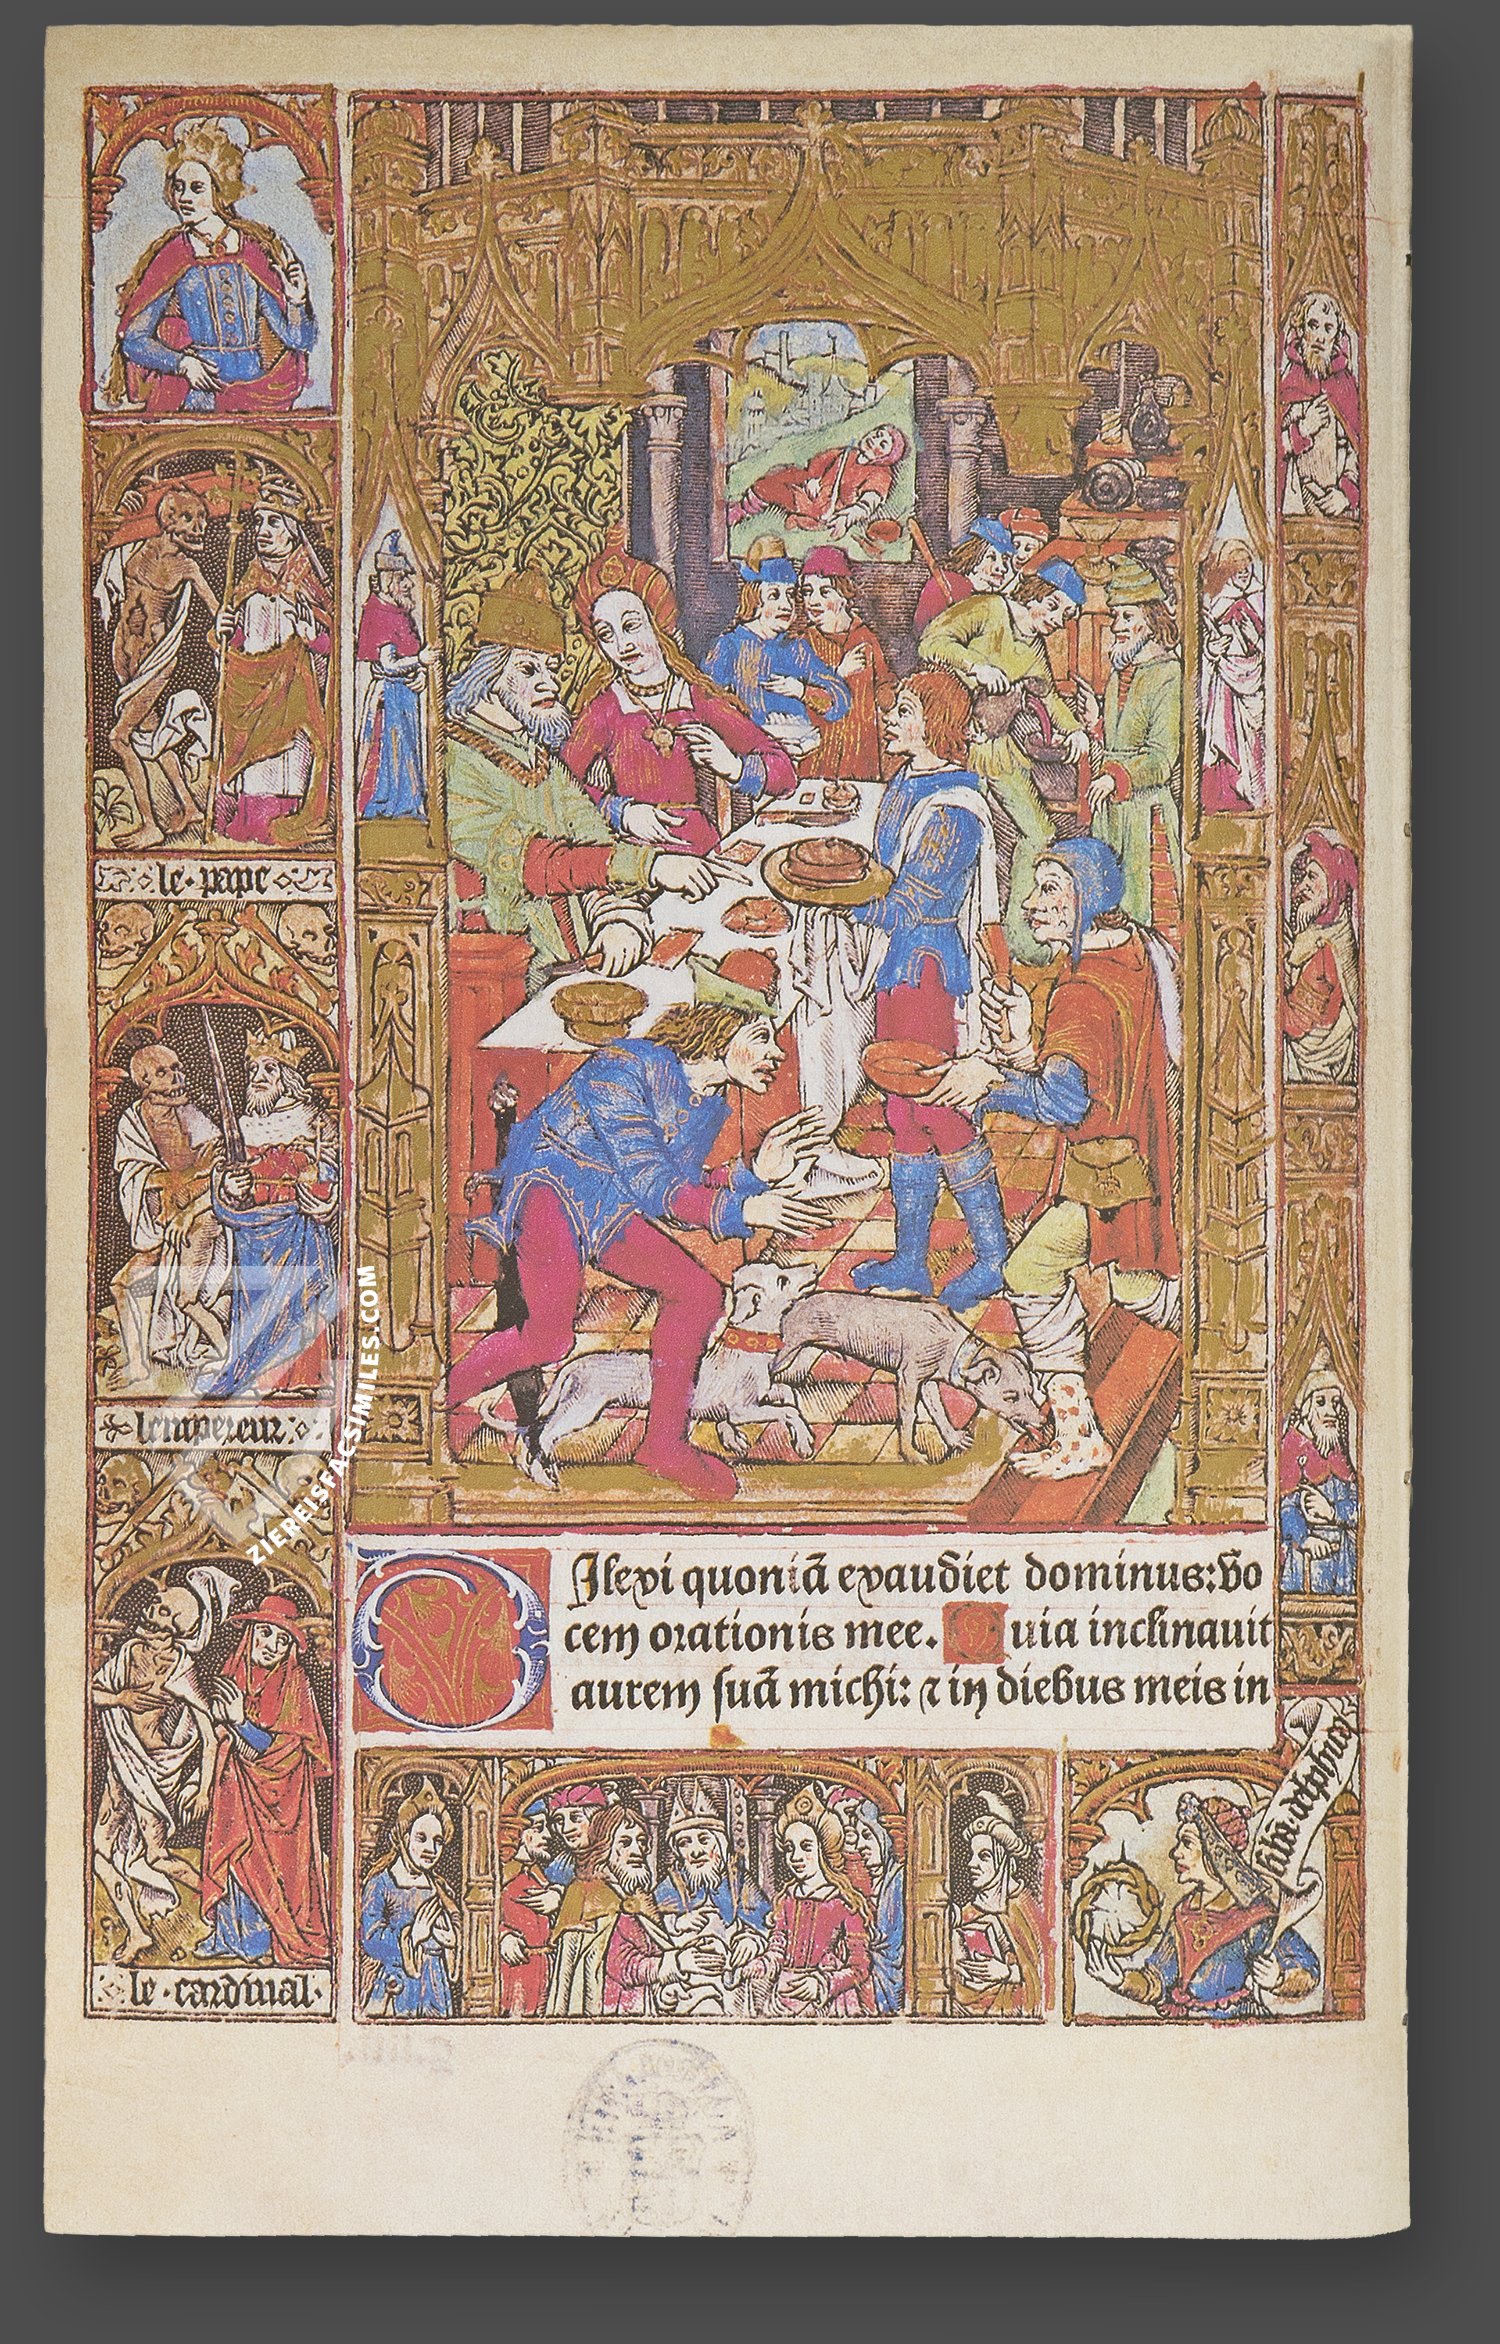 le · pape
lempereur
le · cardinal ·
Dilexi quoniā exaudiet dominus: vo
cem orationis mee. Quia inclinauit
aurem suā michi: ⁊ in diebus meis in
ZIEREISFACSIMILES.COM